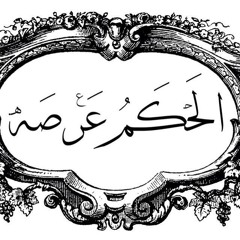 الحَكَمُ عَرصَه